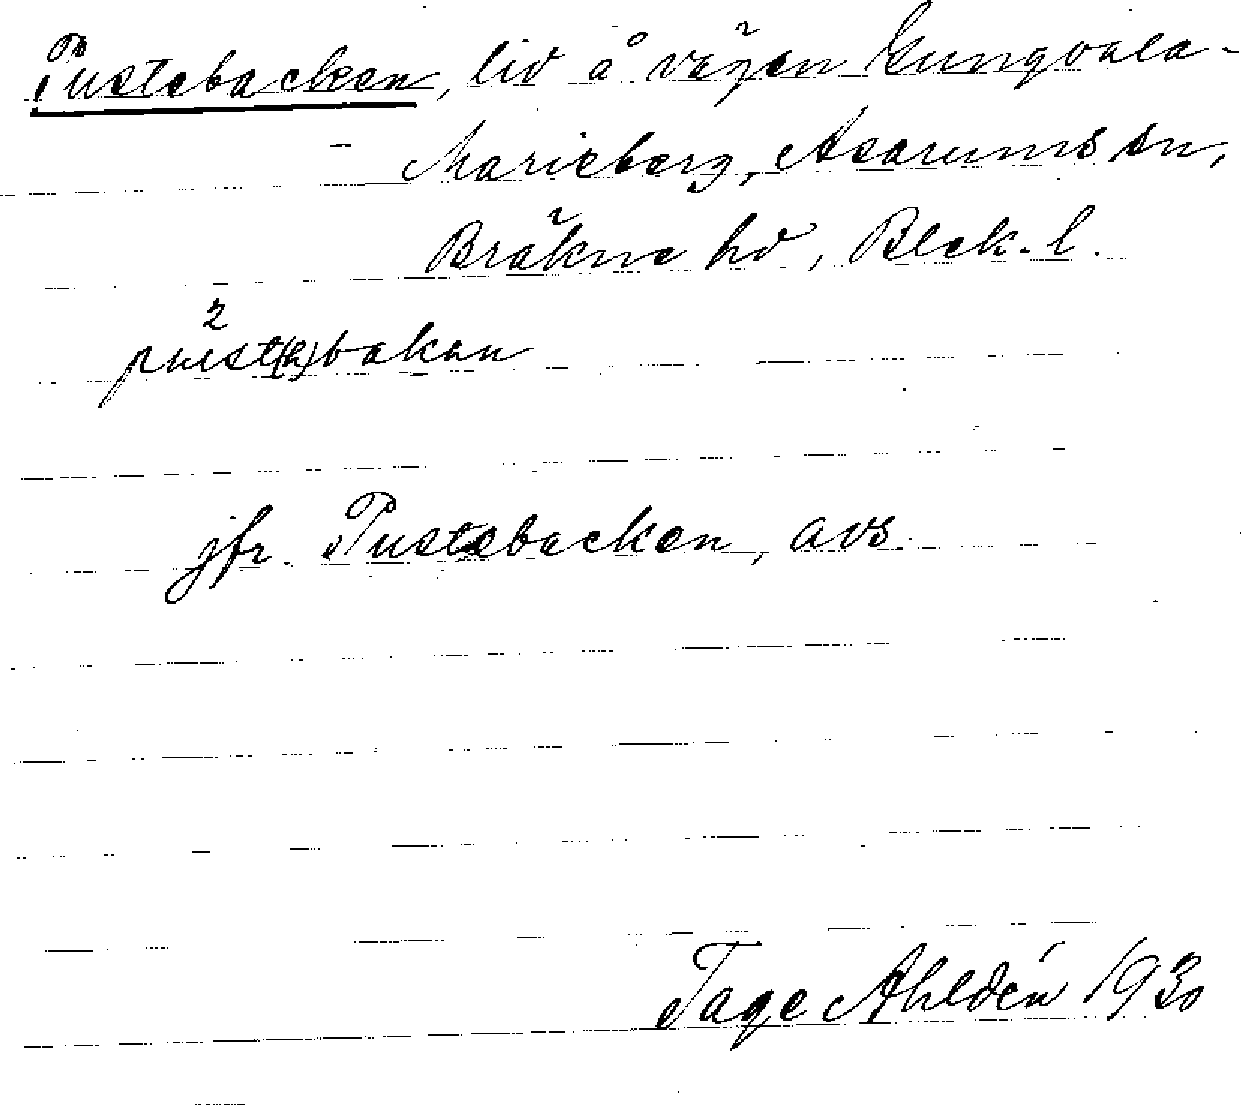 Pustebacken, lid å vägen Gungvala-
- Marieberg, Asarums sn,
Bräkne hd, Blek. l.
2
pust(ə)bakan
jfr. Pustebacken, avs.
Tage Ahldén 1930